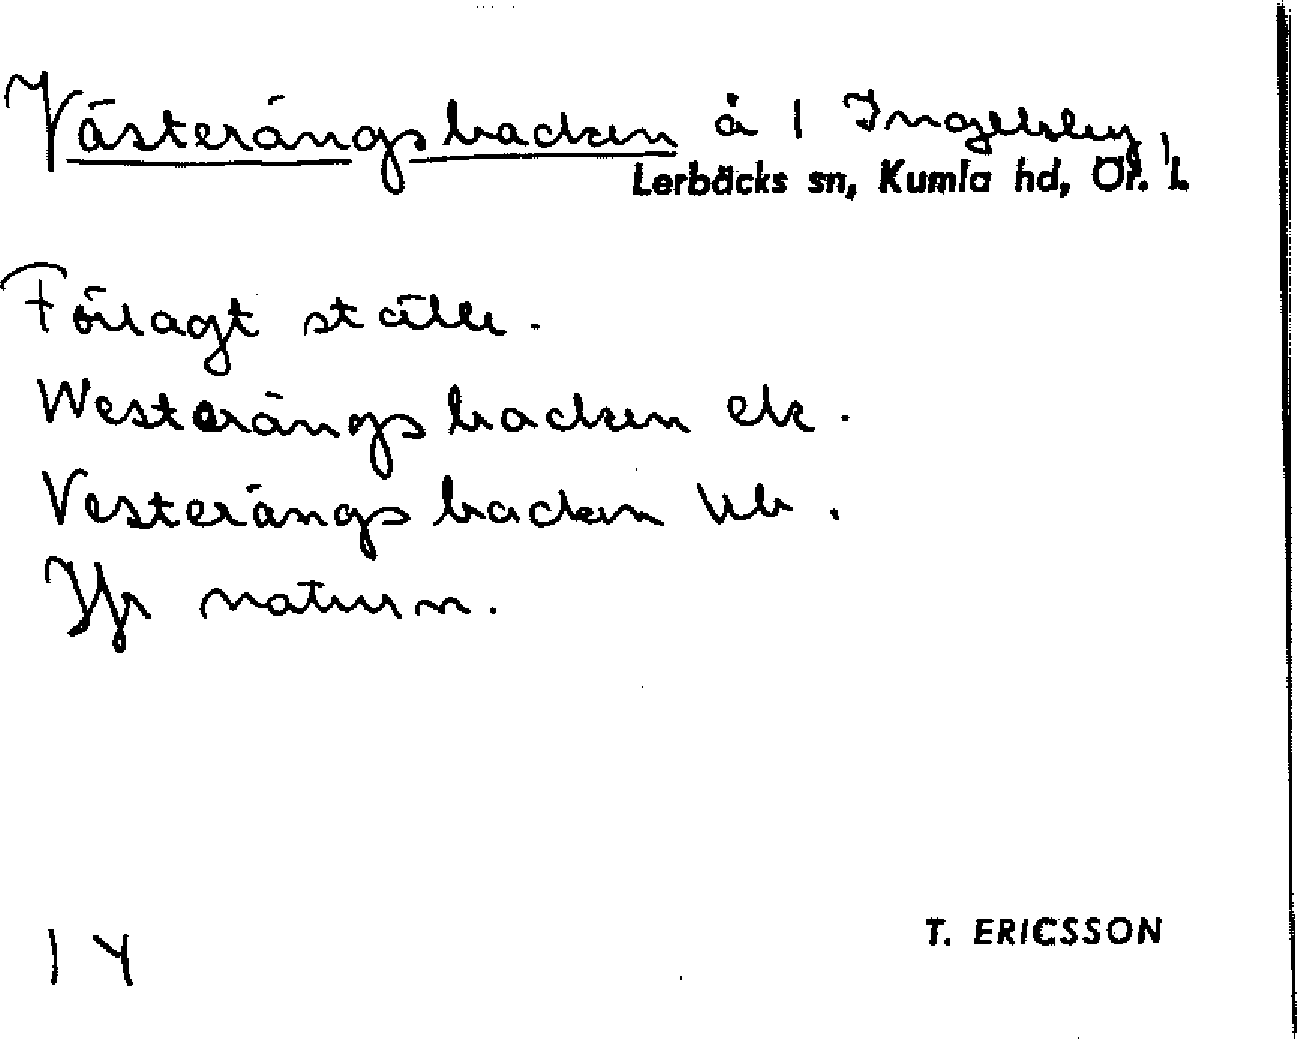 Västerängsbacken å 1 Ingelsby,
Lerbäcks sn, Kumla hd, Ör. l.
Förlagt ställe.
Westerängsbacken ek.
Vesterängsbacken kb.
Jfr naturn.
14
T. ERICSSON